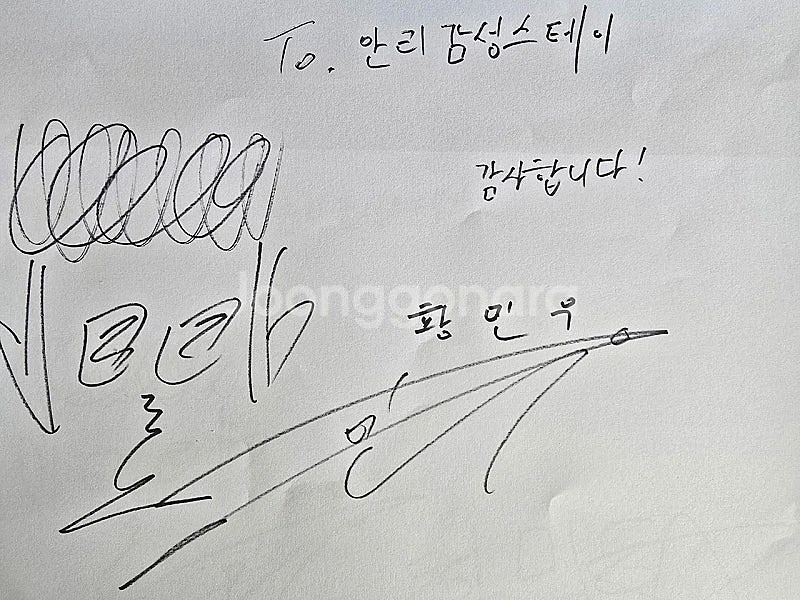 To. 안리 감성스테이
감사합니다!
Joonggonara
황민우